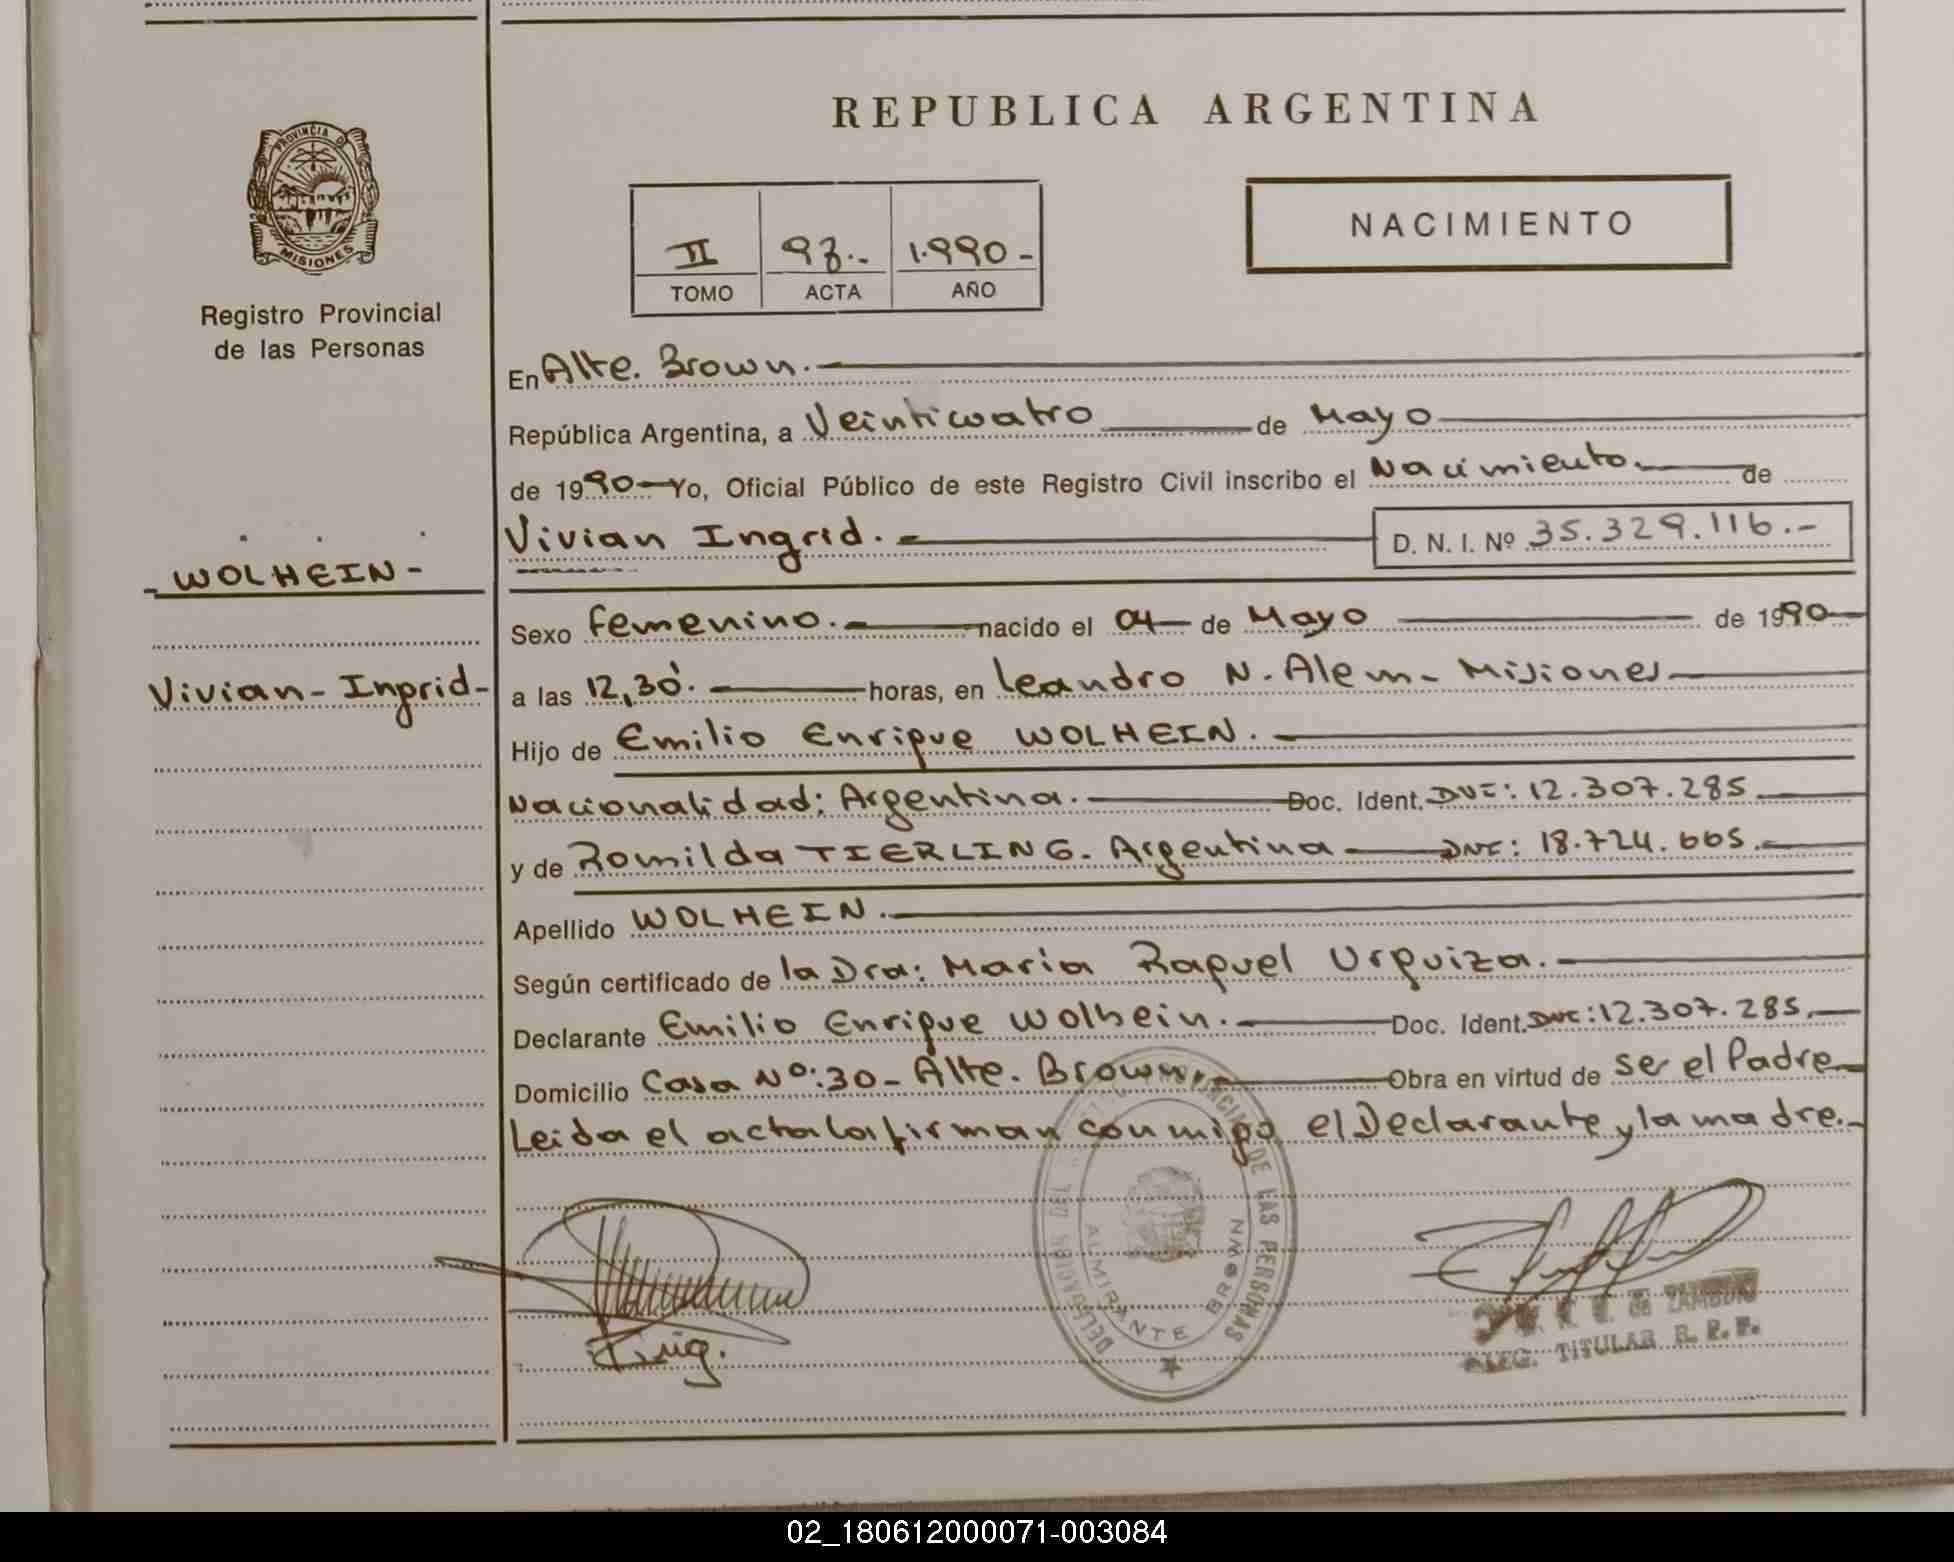 PROVINCIA DE
MISIONES
Registro Provincial
de las Personas
- WOLHEIN -
Vivian - Ingrid -
REPUBLICA ARGENTINA
NACIMIENTO
II 93.- 1.990 -
TOMO ACTA AÑO
En Alte. Brown.
República Argentina, a Veinticuatro de Mayo
de 1990 Yo, Oficial Público de este Registro Civil inscribo el Nacimiento. de
Vivian Ingrid. - D. N. I. Nº 35.329.116.-
Sexo femenino. nacido el 04 de Mayo de 1990
a las 12,30'. horas, en Leandro N. Alem - Misiones
Hijo de Emilio Enrique WOLHEIN.
Nacionalidad: Argentina. Doc. Ident. DNI: 12.307.285
y de Romilda TIERLING. Argentina DNI: 18.724.665.
Apellido WOLHEIN.
Según certificado de la Dra: Maria Raquel Urquiza.
Declarante Emilio Enrique Wolhein. Doc. Ident. DNI: 12.307.285.
Domicilio Casa Nº: 30 - Alte. Brown. Obra en virtud de ser el Padre
Leida el acta la firman conmigo el Declarante y la madre.-
DELEGACION DEL PROVINCIAL DE LAS PERSONAS
ALMIRANTE BROWN
de ZAMUDIO
DELEG. TITULAR R. P. P.
02_180612000071-003084